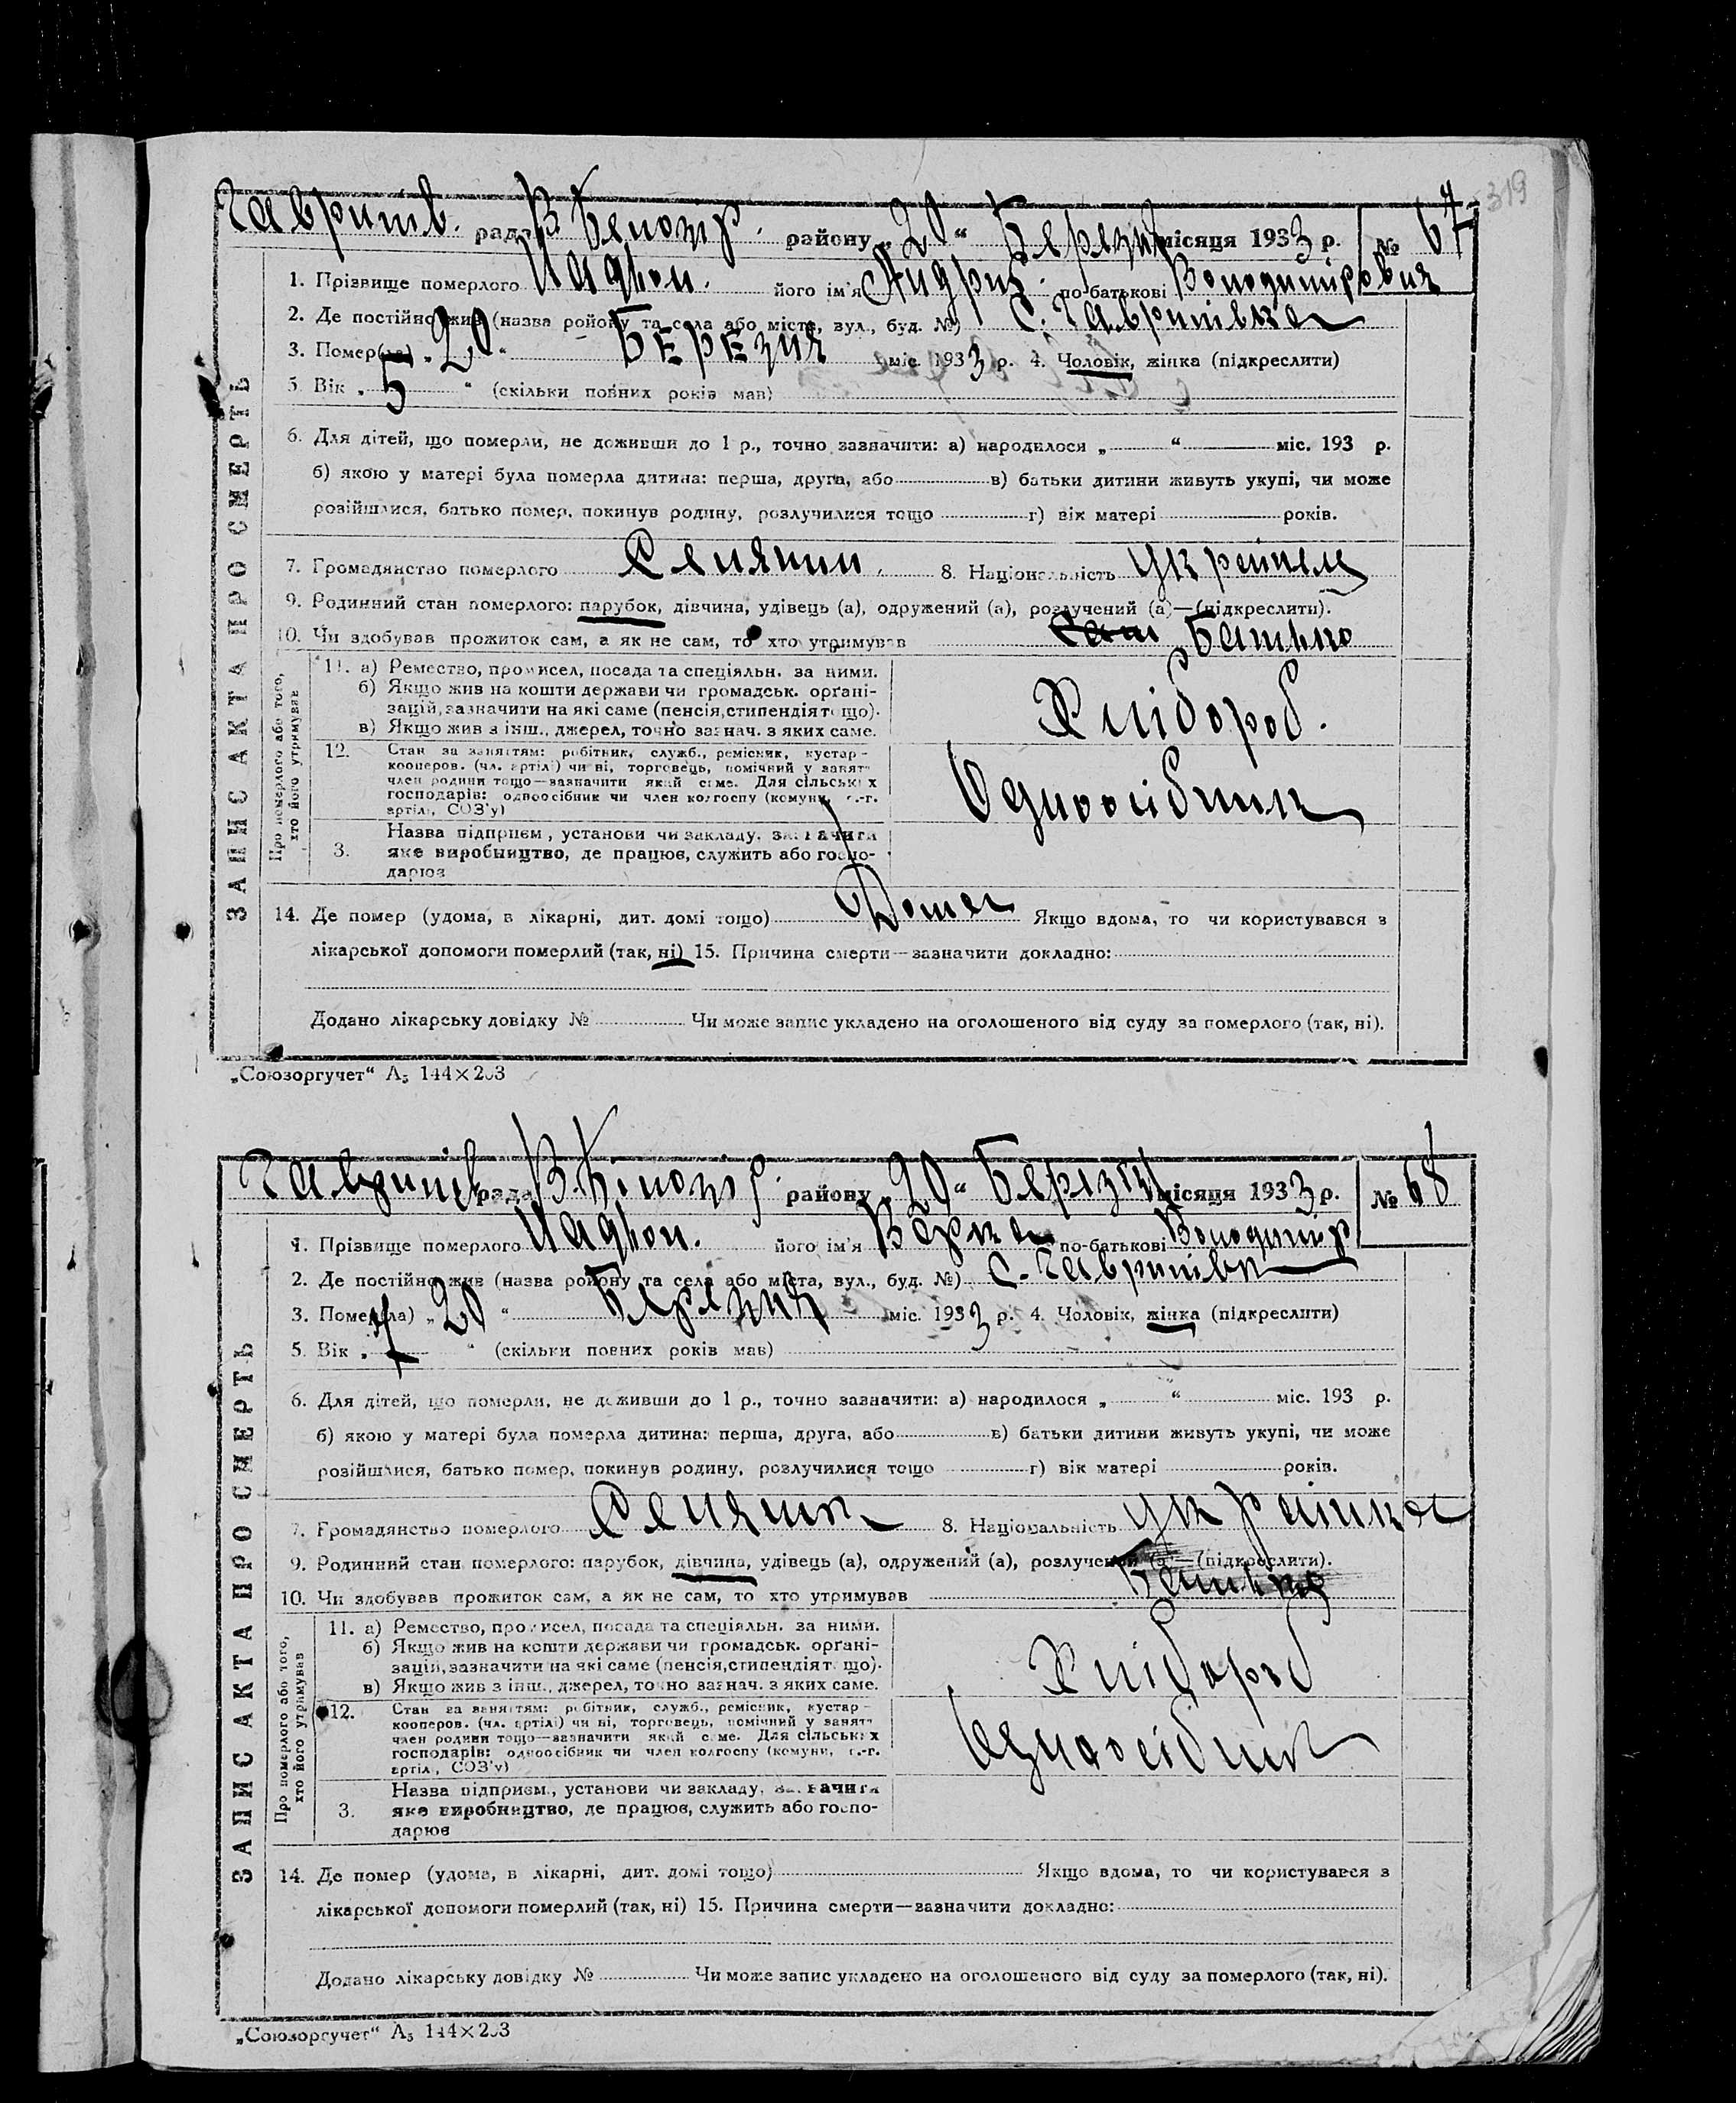 319
Гавришів. рада В. Білозір. району „20“ Березня місяця 1933 р. № 67
1. Прізвище померлого його ім'я Андрій по-батькові Володимірович
2. Де постійно жив (назва ройону та села або міста, вул., буд. №) С. Гавришівка
3. Помер(ла) „20“ Березня міс. 1933 р. 4. Чоловік, жінка (підкреслити)
5. Вік „5“ (скільки повних років мав)
6. Для дітей, що померли, не доживши до 1 р., точно зазначити: а) народилося „ “ міс. 193 р.
б) якою у матері була померла дитина: перша, друга, або в) батьки дитини живуть укупі, чи може
розійшлися, батько помер, покинув родину, розлучилися тощо г) вік матері років.
7. Громадянство померлого Селянин 8. Національність
9. Родинний стан померлого: парубок, дівчина, удівець (а), одружений (а), розлучений (а)—(підкреслити).
10. Чи здобував прожиток сам, а як не сам, то хто утримував Батько
ЗАПИС АКТА ПРО СМЕРТЬ
Про померлого або того, хто його утримував
11. а) Ремество, промисел, посада та спеціяльн. за ними.
б) Якщо жив на кошти держави чи громадськ. орґані-
зацій, зазначити на які саме (пенсія, стипендія тощо).
в) Якщо жив з інш., джерел, точно зазнач. з яких саме.
Хлібороб.
12. Стан за заняттям: робітник, служб., ремісник, кустар-
кооперов. (чл. артілі) чи ні, торговець, помічний у занят-
член родини тощо—зазначити який саме. Для сільських
господарів: одноосібник чи член колгоспу (комуни, с.-г.
артілі, СОЗ'у)
Одноосібник
3. Назва підприєм., установи чи закладу, зазначити
яке виробництво, де працює, служить або госпо-
дарює
14. Де помер (удома, в лікарні, дит. домі тощо) Дома Якщо вдома, то чи користувався з
лікарської допомоги померлий (так, ні) 15. Причина смерти—зазначити докладно:
Додано лікарську довідку № Чи може запис укладено на оголошеного від суду за померлого (так, ні).
„Союзоргучет“ А5 144×203
Гавришів рада В. Білозір. району „20“ Березня місяця 1933 р. № 68
1. Прізвище померлого його ім'я по-батькові Володимір
2. Де постійно жив (назва ройону та села або міста, вул., буд. №) С. Гавришівк
3. Помер(ла) „20“ Березня міс. 1933 р. 4. Чоловік, жінка (підкреслити)
5. Вік „ “ (скільки повних років мав)
6. Для дітей, що померли, не доживши до 1 р., точно зазначити: а) народилося „ “ міс. 193 р.
б) якою у матері була померла дитина: перша, друга, або в) батьки дитини живуть укупі, чи може
розійшлися, батько помер, покинув родину, розлучилися тощо г) вік матері років.
7. Громадянство померлого Селянк 8. Національність Українка
9. Родинний стан померлого: парубок, дівчина, удівець (а), одружений (а), розлучений (а)—(підкреслити).
10. Чи здобував прожиток сам, а як не сам, то хто утримував Батько
ЗАПИС АКТА ПРО СМЕРТЬ
Про померлого або того, хто його утримував
11. а) Ремество, промисел, посада та спеціяльн. за ними.
б) Якщо жив на кошти держави чи громадськ. орґані-
зацій, зазначити на які саме (пенсія, стипендія тощо).
в) Якщо жив з інш., джерел, точно зазнач. з яких саме.
Хлібороб
12. Стан за заняттям: робітник, служб., ремісник, кустар-
кооперов. (чл. артілі) чи ні, торговець, помічний у занят-
член родини тощо—зазначити який саме. Для сільських
господарів: одноосібник чи член колгоспу (комуни, с.-г.
артілі, СОЗ'у)
Одноосібник
3. Назва підприєм., установи чи закладу, зазначити
яке виробництво, де працює, служить або госпо-
дарює
14. Де помер (удома, в лікарні, дит. домі тощо) Якщо вдома, то чи користувався з
лікарської допомоги померлий (так, ні) 15. Причина смерти—зазначити докладно:
Додано лікарську довідку № Чи може запис укладено на оголошеного від суду за померлого (так, ні).
„Союзоргучет“ А5 144×203